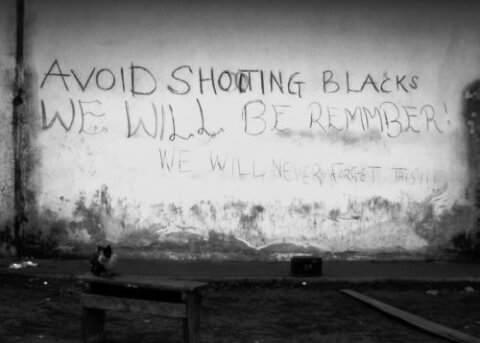 AVOID SHOOTING BLACKS
WE. WILL. BE REMMBER!
WE WILL NEVER FORGET THIS!!!